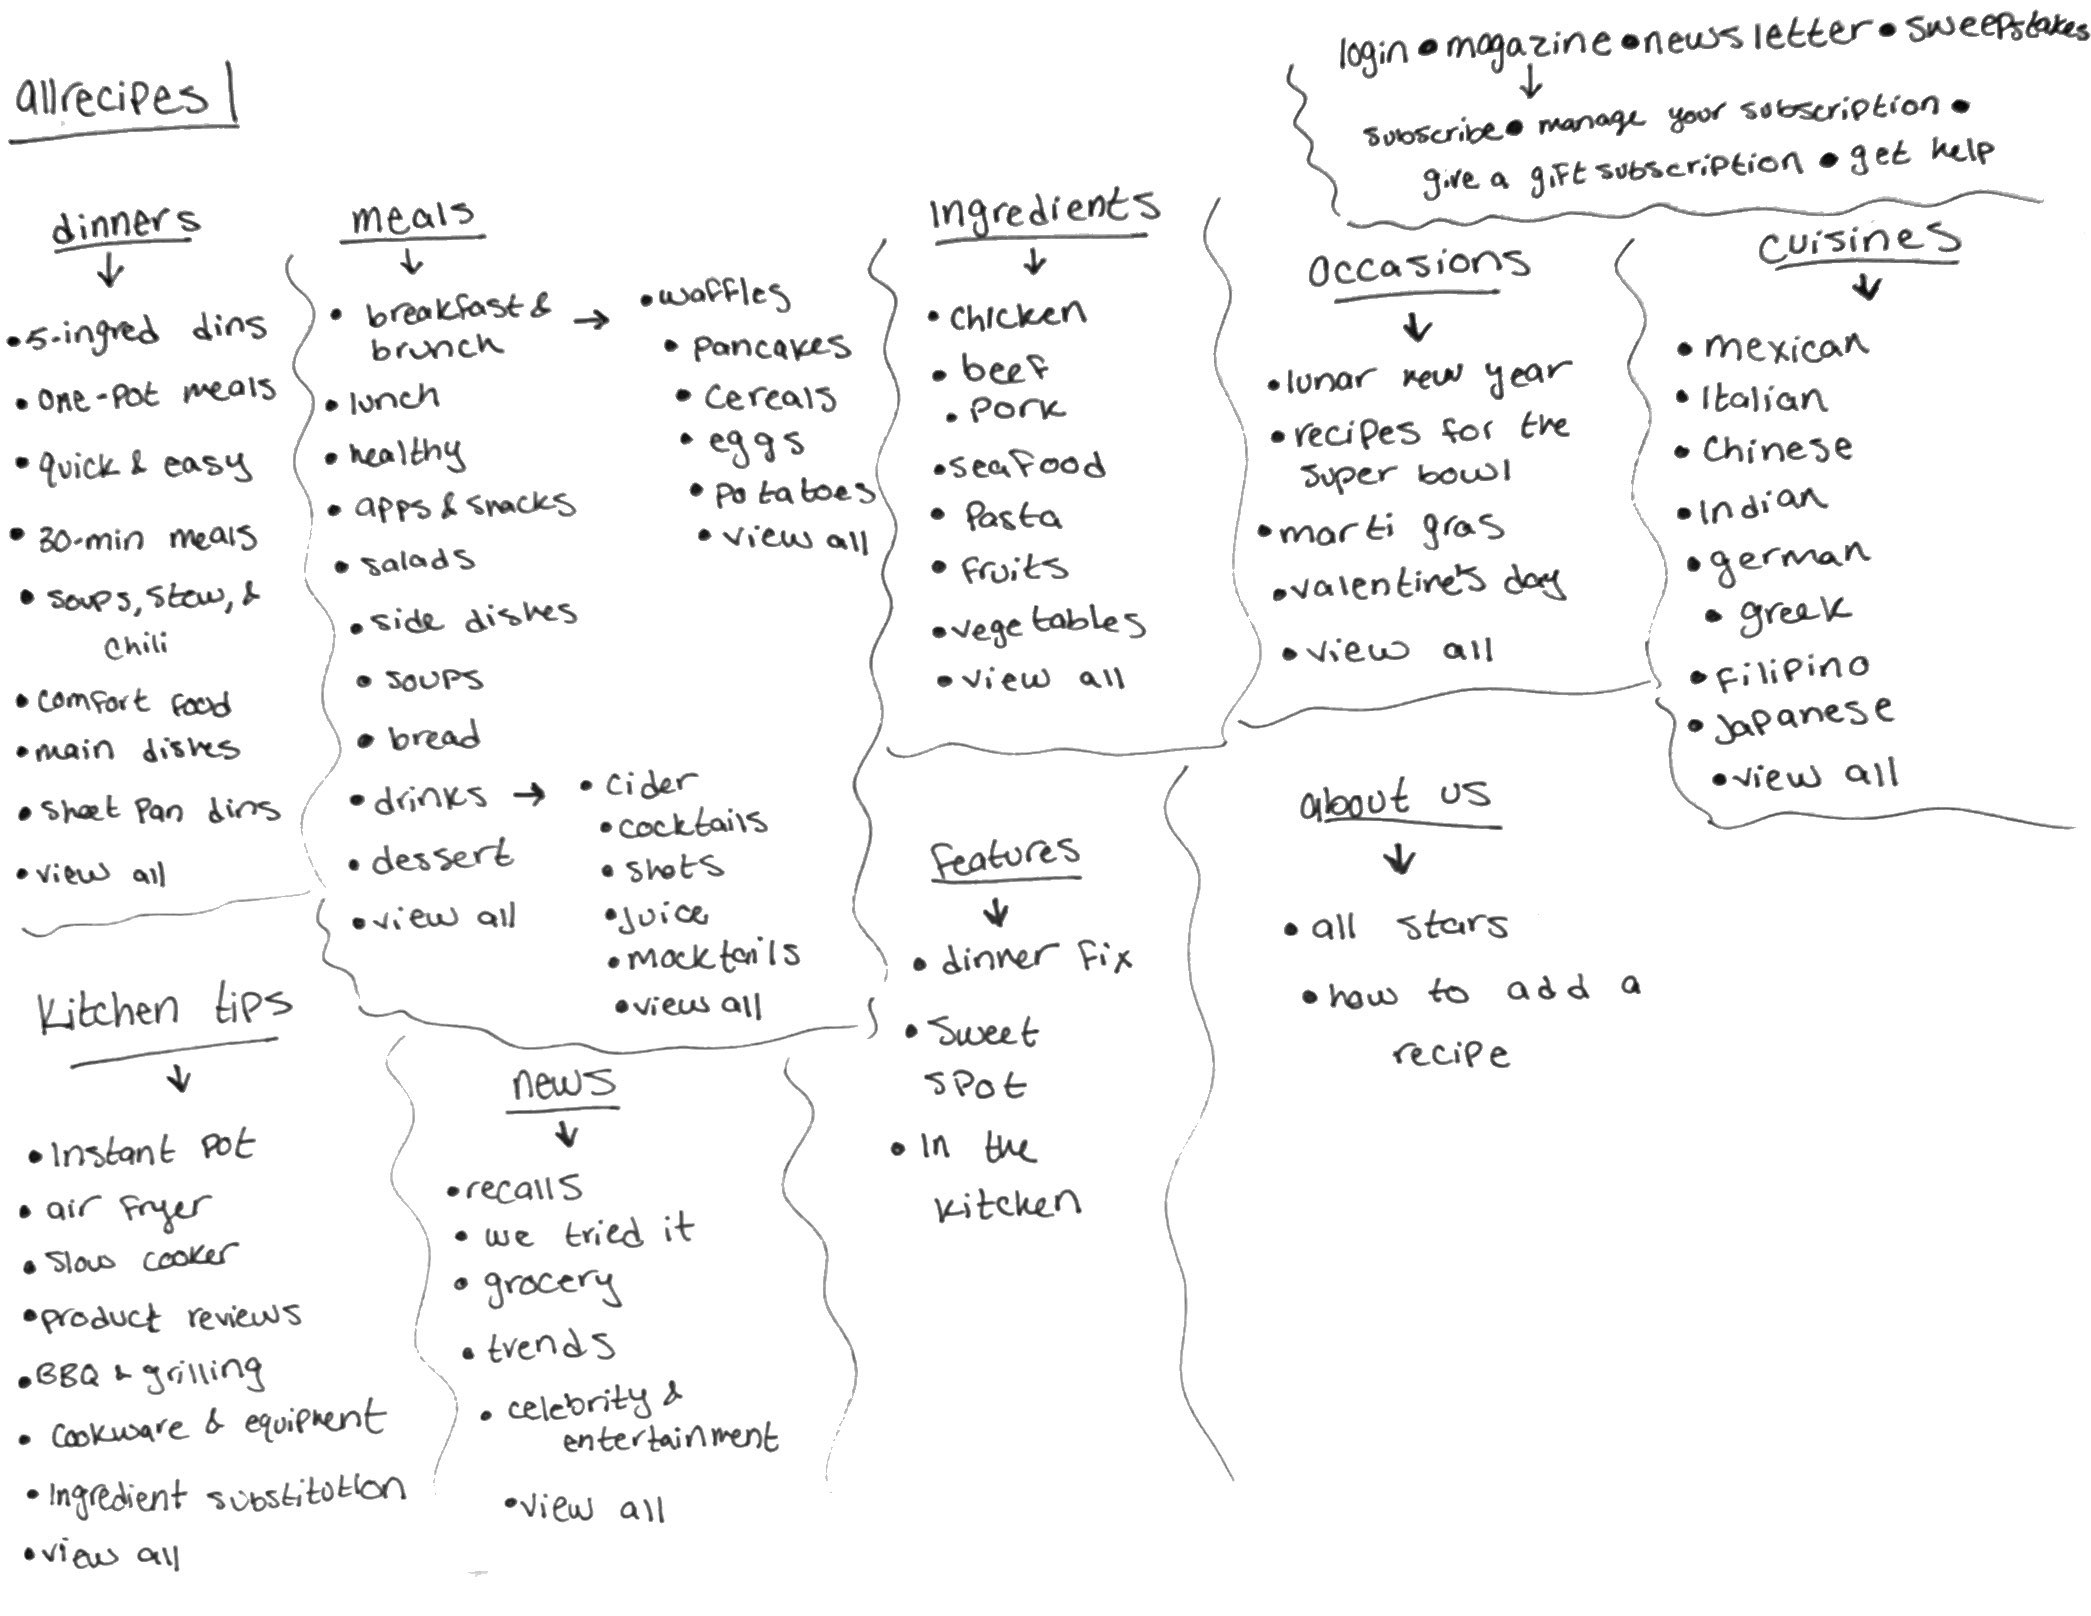 allrecipes
login • magazine • newsletter • sweepstakes
subscribe • manage your subscription •
give a gift subscription • get help
dinners
• 5-ingred dins
• one-pot meals
• quick & easy
• 30-min meals
• soups, stew, &
chili
• comfort food
• main dishes
• sheet pan dins
• view all
meals
• breakfast &
brunch
• lunch
• healthy
• apps & snacks
• salads
• side dishes
• soups
• bread
• drinks
• dessert
• view all
• waffles
• pancakes
• cereals
• eggs
• potatoes
• view all
• cider
• cocktails
• shots
• juice
• mocktails
• view all
Ingredients
• chicken
• beef
• pork
• seafood
• pasta
• fruits
• vegetables
• view all
occasions
• lunar new year
• recipes for the
super bowl
• marti gras
• valentine's day
• view all
cuisines
• mexican
• Italian
• Chinese
• Indian
• german
• greek
• filipino
• Japanese
• view all
kitchen tips
• Instant pot
• air fryer
• slow cooker
• product reviews
• BBQ & grilling
• cookware & equipment
• Ingredient substitution
• view all
news
• recalls
• we tried it
• grocery
• trends
• celebrity &
entertainment
• view all
features
• dinner fix
• Sweet
spot
• In the
kitchen
about us
• all stars
• how to add a
recipe